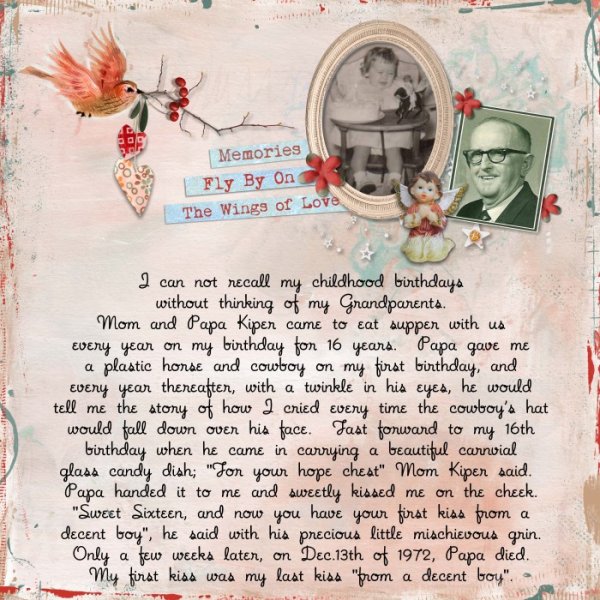 Memories
Fly By On
The Wings of Love
I can not recall my childhood birthdays
without thinking of my Grandparents.
Mom and Papa Kiper came to eat supper with us
every year on my birthday for 16 years. Papa gave me
a plastic horse and cowboy on my first birthday, and
every year thereafter, with a twinkle in his eyes, he would
tell me the story of how I cried every time the cowboy's hat
would fall down over his face. Fast forward to my 16th
birthday when he came in carrying a beautiful carnvial
glass candy dish; "For your hope chest" Mom Kiper said.
Papa handed it to me and sweetly kissed me on the cheek.
"Sweet Sixteen, and now you have your first kiss from a
decent boy", he said with his precious little mischievous grin.
Only a few weeks later, on Dec.13th of 1972, Papa died.
My first kiss was my last kiss "from a decent boy".